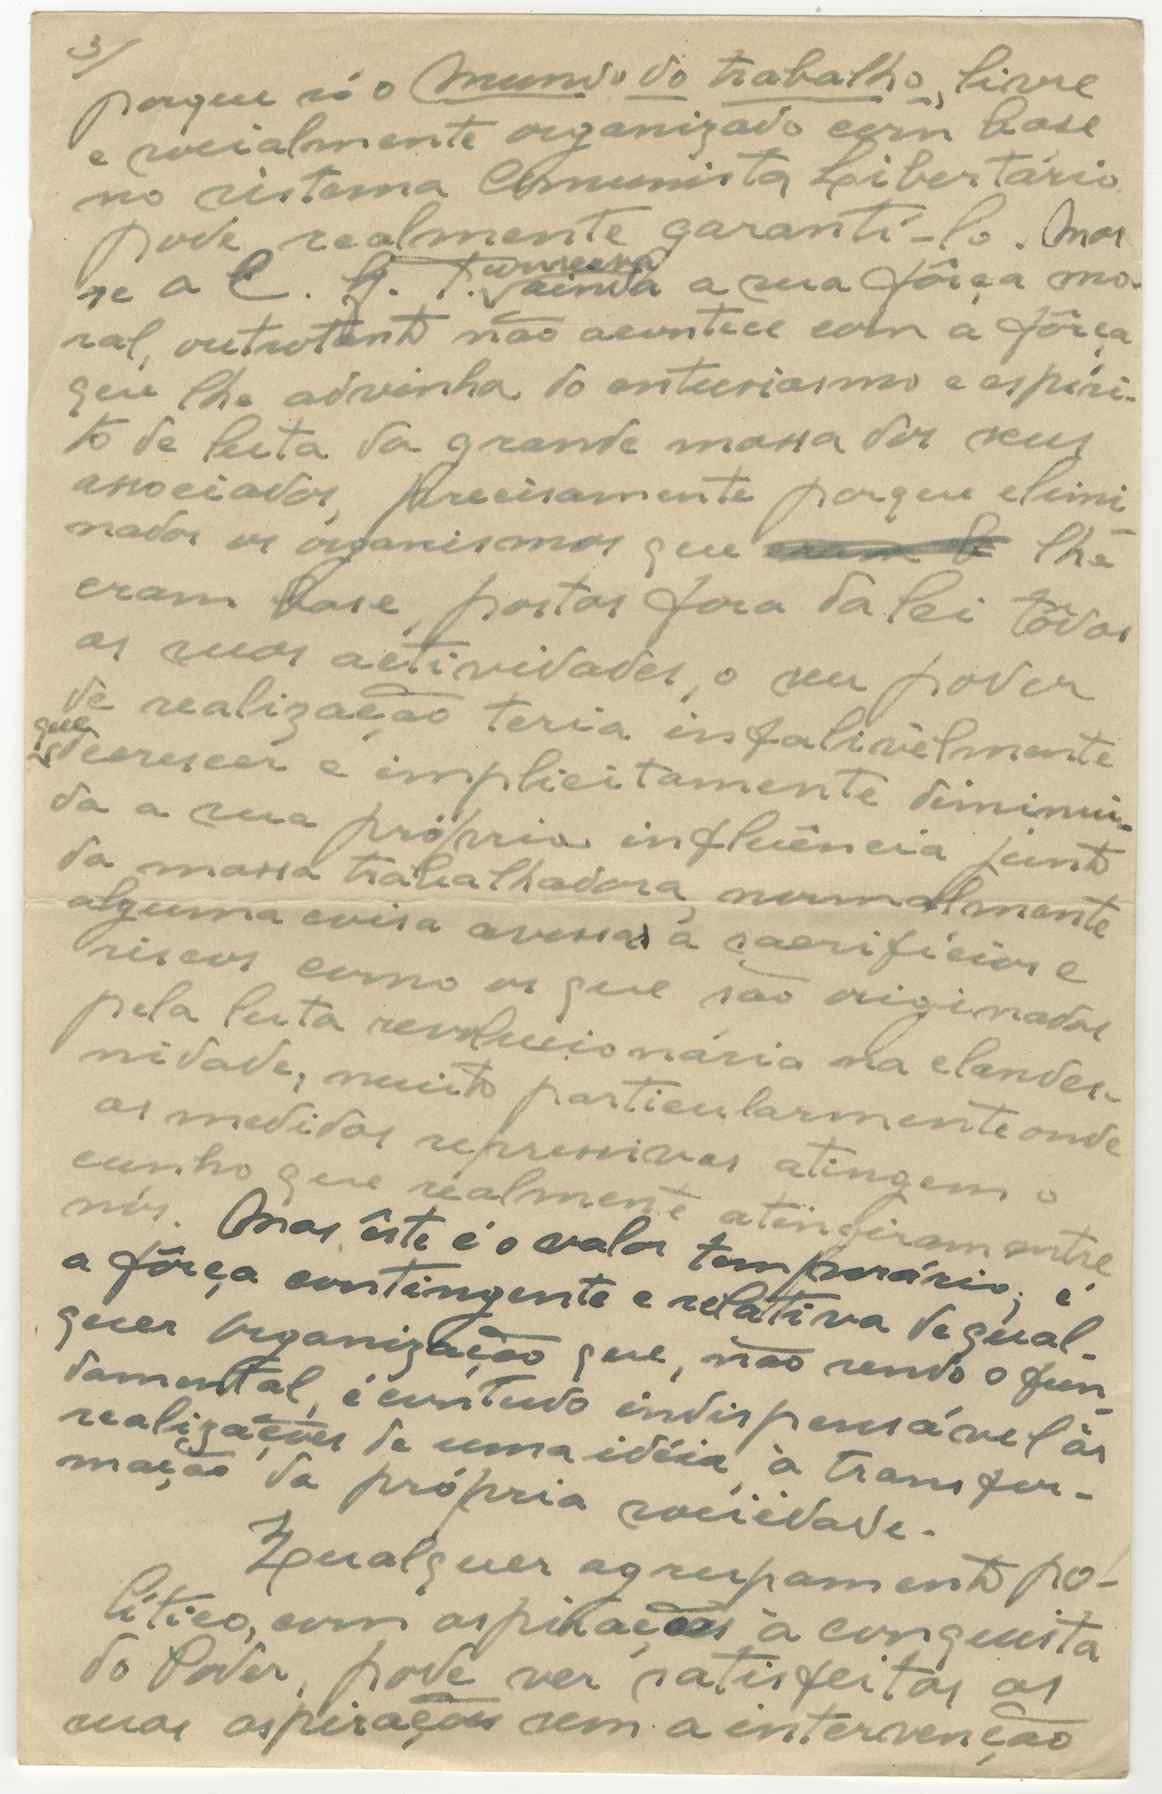 3/
porque só o mundo do trabalho, livre
e socialmente organizado com base
no sistema Comunista Libertário
pode realmente garantí-lo. Mas
se a C. G. T. conserva ainda a sua fôrça mo-
ral, outrotanto não acontece com a fôrça
que lhe advinha do entusiasmo e espíri-
to de luta da grande massa dos seus
associados, precisamente porque elimi-
nados os organismos que lhe
eram base, postas fora da lei tôdas
as suas actividades, o seu poder
de realização teria infalivelmente
que decrescer e implicitamente diminui-
da a sua própria influência junto
da massa trabalhadora, normalmente
alguma coisa avessa a sacrifícios e
riscos como os que são originados
pela luta revolucionária na clandes-
nidade, muito particularmente onde
as medidas repressivas atingem o
cunho que realmente atingiram entre
nós. Mas êste é o valor temporário; é
a fôrça contingente e relativa de qual-
quer organização que, não sendo o fun-
damental, é contudo indispensável às
realizações de uma idéia, à transfor-
mação da própria sociedade.
Qualquer agrupamento po-
lítico, com aspirações à conquista
do Poder, pode ver satisfeitas as
suas aspirações sem a intervenção